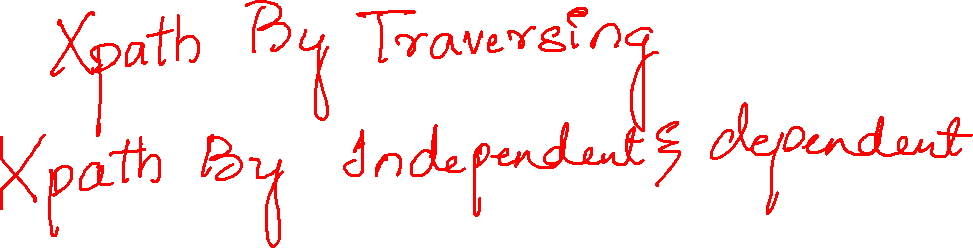 Xpath By Traversing
Xpath By Independent & dependent